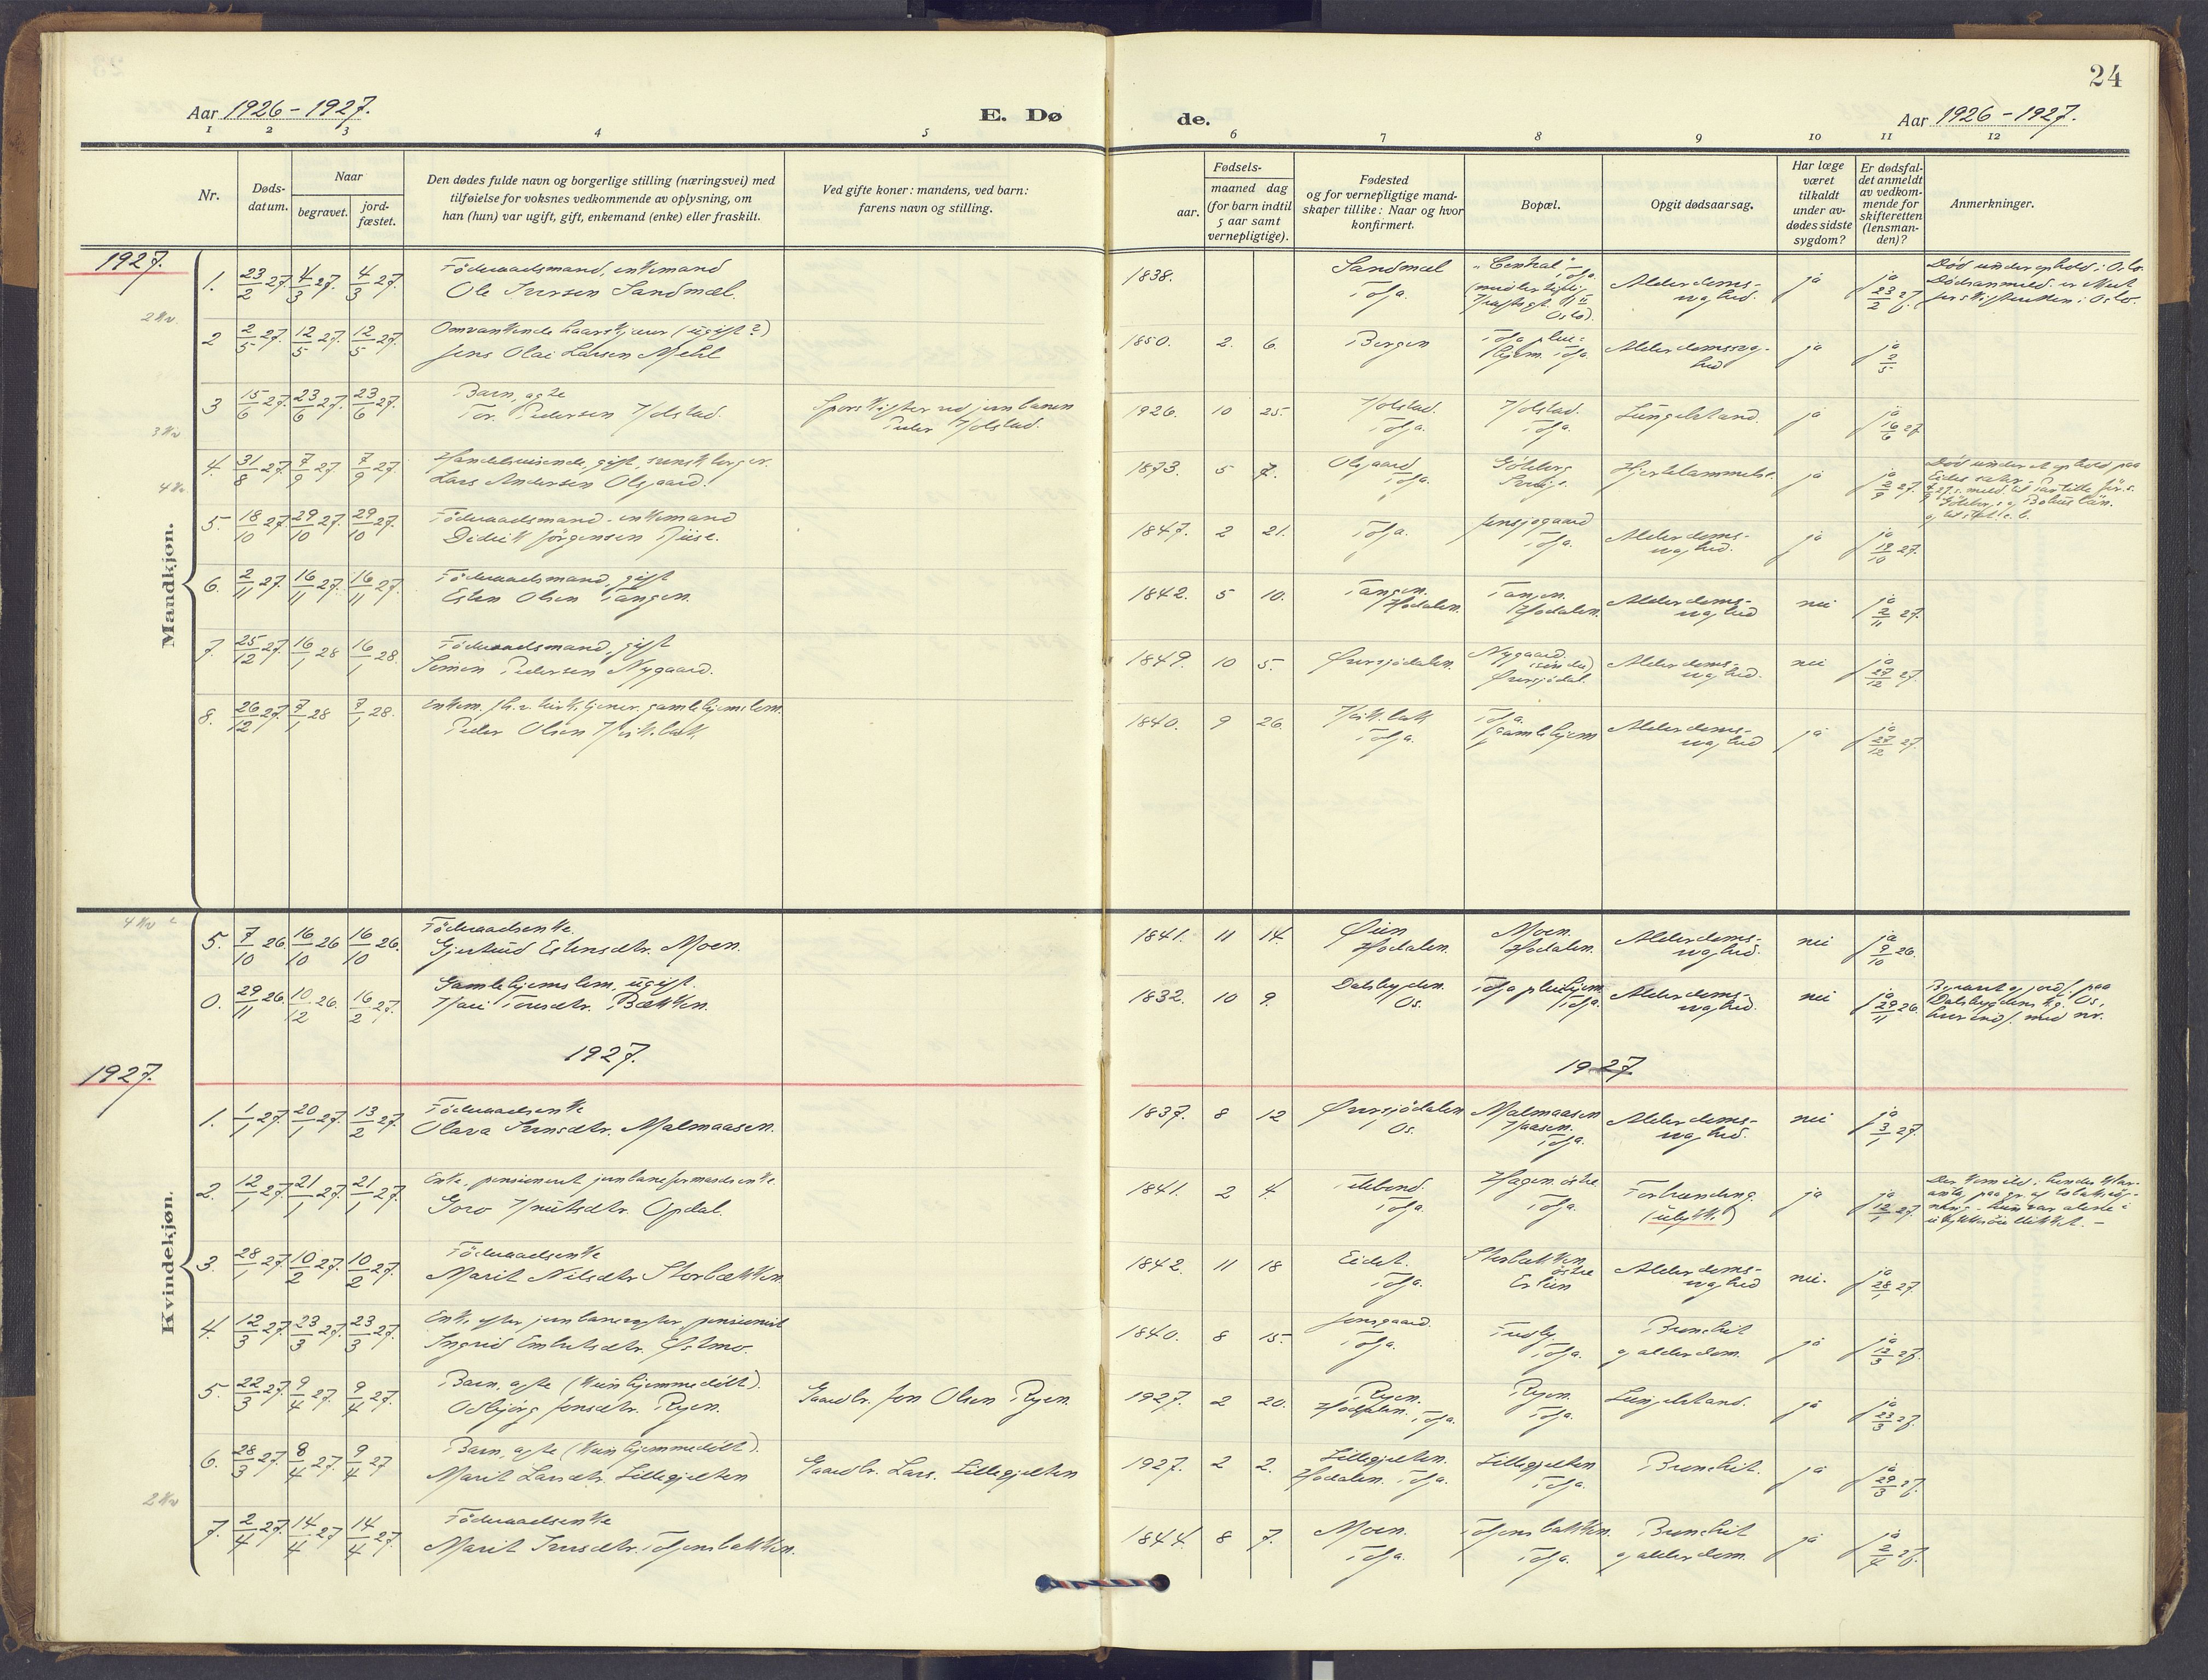 24
Aar 1926 - 1927.
E. Dø
de.
Aar 1926 - 1927.
1 2 3 4 5 6 7 8 9 10 11 12
Nr.
Døds-
datum.
Naar
begravet.
jord-
fæstet.
Den dødes fulde navn og borgerlige stilling (næringsvei) med
tilføielse for voksnes vedkommende av oplysning, om
han (hun) var ugift, gift, enkemand (enke) eller fraskilt.
Ved gifte koner: mandens, ved barn:
farens navn og stilling.
Fødsels-
aar.
maaned dag
(for barn indtil
5 aar samt
vernepligtige).
Fødested
og for vernepligtige mand-
skaper tillike: Naar og hvor
konfirmert.
Bopæl.
Opgit dødsaarsag.
Har læge
været
tilkaldt
under av-
dødes sidste
sygdom?
Er dødsfal-
det anmeldt
av vedkom-
mende for
skifteretten
(lensman-
den)?
Anmerkninger.
Mandkjøn.
1927.
1. 23/2 27. 4/3 27. 4/3 27. Föderaadsmand, enkemand
Ole Iversen Sandmæl.
1838. Sandmæl
Tolga.
"Central",
Oslo).
Alderdoms-
svaghed.
ja
ja 23/2 27.
Död under ophold i Oslo.
2 2/5 27. 12/5 27. 12/5 27. Omvankende haarskjærer (ugift?)
Jens Olai Larsen Mehl
1850. 2. 6. Bergen
Tolga pleie-
hjem. Tolga.
Alderdomssvag-
hed
ja
ja 2/5
3 15/6 27. 23/6 27. 23/6 27. Barn, ægte
Tor. Pedersen Holstad.
Sporskifter ved jernbanen
Peder Holstad.
1926. 10 25. Holstad.
Tolga.
Holstad.
Tolga.
Lungebetænd.
ja
ja 16/6 27
4. 31/8 27. 7/9 27 7/9 27. Handelsreisende, gift, svensk borger.
Lars Andersen Olsgaard.
1873. 5 7. Olsgaard
Tolga.
Göteborg
Sverige.
Hjertelammelse.
ja
ja 2/9 27.
Död under et ophold paa
5. 18/10 27. 29/10 27. 29/10 27. Föderaadsmand - enkemand
Didrik Jörgensen Riise.
1847. 2 21. Tolga.
Jensgaard
Tolga.
Alderdoms-
svaghed.
ja
ja 19/10 27.
6. 2/11 27. 16/11 27. 16/11 27. Föderaadsmand, gift
Esten Olsen Tangen.
1842. 5 10. Tangen.
Hodalen.
Tangen.
Hodalen.
Alderdoms-
svaghed
nei
ja 2/11 27.
7. 25/12 27. 16/1 28 16/1 28. Föderaadsmand, gift
Simen Pedersen Nygaard.
1849. 10 5. Øversjödalen.
Nygaard.
Øversjödal.
Alderdoms-
svaghed.
nei
ja 27/12 27.
8. 26/12 27. 7/1 28 7/1 28. Enkem. fh.v. kirketjener, gamlehjemslem.
Peder Olsen Kirkbak.
1840. 9 26. Kirkbak
Tolga.
Tolga.
gamlehjem
Alderdoms-
svaghed
ja
ja 27/12 27.
Kvindekjøn.
5. 7/10 26. 16/10 26 16/10 26. Föderaadsenke
Gjertrud Estensdtr. Moen.
1841. 11 14. Øien
Hodalen.
Moen.
Hodalen.
Alderdoms-
svaghed.
nei
ja 9/10 26.
0. 29/11 26. 10/12 26. 16/2 27. Gamlehjemslem, ugift.
Kari Toresdtr. Bækken.
1832. 10 9. Dalsbygden.
Os.
Tolga pleiehjem
Tolga.
Alderdoms-
svaghed.
nei
ja 29/11 26.
Begravet og jordf. paa
Dalsbygdens kg. Os,
1927. 1927. 1927.
1. 1/1 27. 20/1 27. 13/2 27. Föderaadsenke
Olava Iversdtr. Malmaasen.
1837. 8 12 Øversjödalen
Os.
Malmaasen
Tolga.
Alderdoms-
svaghed.
nei
ja 3/1 27.
2. 12/1 27. 21/1 27. 21/1 27. Enke, pensioneret jernbaneformandsenke.
Goro Knutsdtr. Opdal.
1841. 2 4. Tolga.
Hagen östre
Tolga.
Forbrending.
(ulykke)
ja
ja 12/1 27.
3. 28/1 27. 10/2 27. 10/2 27. Föderaadsenke
Marit Nilsdtr. Storbækken
1842. 11 18 Eidet.
Tolga.
Storbækken
östre
Erlien
Alderdoms-
svaghed
nei.
ja 28/1 27.
4. 12/3 27. 23/3 27. 23/3 27. Enke efter jernbanevogter, pensionist
Ingrid Embretsdtr. Østmo.
1840. 8 15. Jonsgaard.
Tolga.
Tolga.
Bronchit
og alderdom.
ja
ja 12/3 27.
5. 22/3 27. 9/4 27. 9/4 27. Barn, ægte (kun hjemmedöbt).
Odbjörg Jonsdtr. Ryen.
Gaardbr. Jon Olsen Ryen.
1927. 2 20. Ryen.
Hodalen. Tolga.
Ryen.
Tolga.
Lungebetænd.
ja
ja 23/3 27.
6. 28/3 27. 8/4 27. 9/4 27 Barn, ægte (kun hjemmedöbt).
Marit Larsdtr. Lillegjelten
Gaardbr. Lars. Lillegjelten
1927. 2 2. Lillegjelten.
Hodalen. Tolga.
Lillegjelten
Tolga.
Bronchit.
ja
ja 29/3 27.
7. 2/4 27. 14/4 27 14/4 27. Föderaadsenke
Marit Iversdtr. Tolgensbakken.
1844. 8 7. Moen.
Tolga.
Tolgensbakken.
Tolga.
Bronchit
og alderdom.
ja
ja 2/4 27.